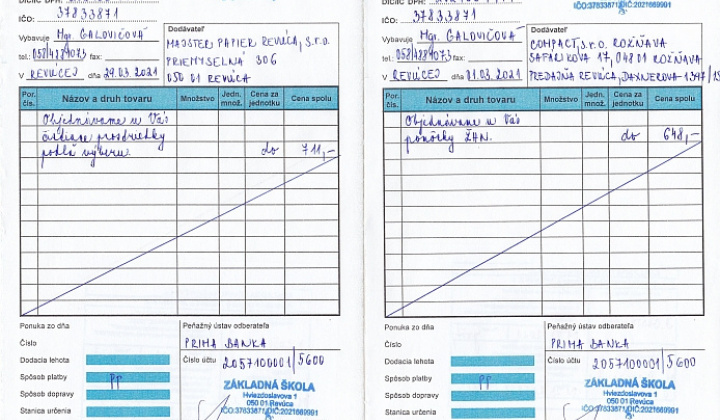 IČO: 37833871
Vybavuje Mgr. GALOVIČOVÁ
tel.: 058/4884073 fax:
V REVÚCEJ dňa 29.03.2021
Dodávateľ
MAJSTER PAPIER REVÚCA, s.r.o.
PRIEMYSELNÁ 306
050 01 REVÚCA
Por. čís.
Názov a druh tovaru
Množstvo
Jedn. množ.
Cena za jednotku
Cena spolu
Objednávame u Vás
čistiace prostriedky
podľa výberu. do 711,-
Ponuka zo dňa
Číslo
Dodacia lehota
Spôsob platby PP
Spôsob dopravy
Stanica určenia
Peňažný ústav odberateľa
PRIMA BANKA
Číslo účtu 2057100001/5600
ZÁKLADNÁ ŠKOLA
Hviezdoslavova 1
050 01 Revúca
IČO:37833871, DIČ:2021669991
IČO:37833871, DIČ:2021669991
IČO: 37833871
Vybavuje Mgr. GALOVIČOVÁ
tel.: 058/4884073 fax:
V REVÚCEJ dňa 01.03.2021
Dodávateľ
COMPACT, s.r.o. ROŽŇAVA
ŠAFÁRIKOVA 17, 048 01 ROŽŇAVA
PREDAJŇA REVÚCA, DAXNEROVA
Por. čís.
Názov a druh tovaru
Množstvo
Jedn. množ.
Cena za jednotku
Cena spolu
Objednávame u Vás
pomôcky ŽHN. do 648,-
Ponuka zo dňa
Číslo
Dodacia lehota
Spôsob platby PP
Spôsob dopravy
Stanica určenia
Peňažný ústav odberateľa
PRIMA BANKA
Číslo účtu 2057100001/5600
ZÁKLADNÁ ŠKOLA
Hviezdoslavova 1
050 01 Revúca
IČO:37833871, DIČ:2021669991